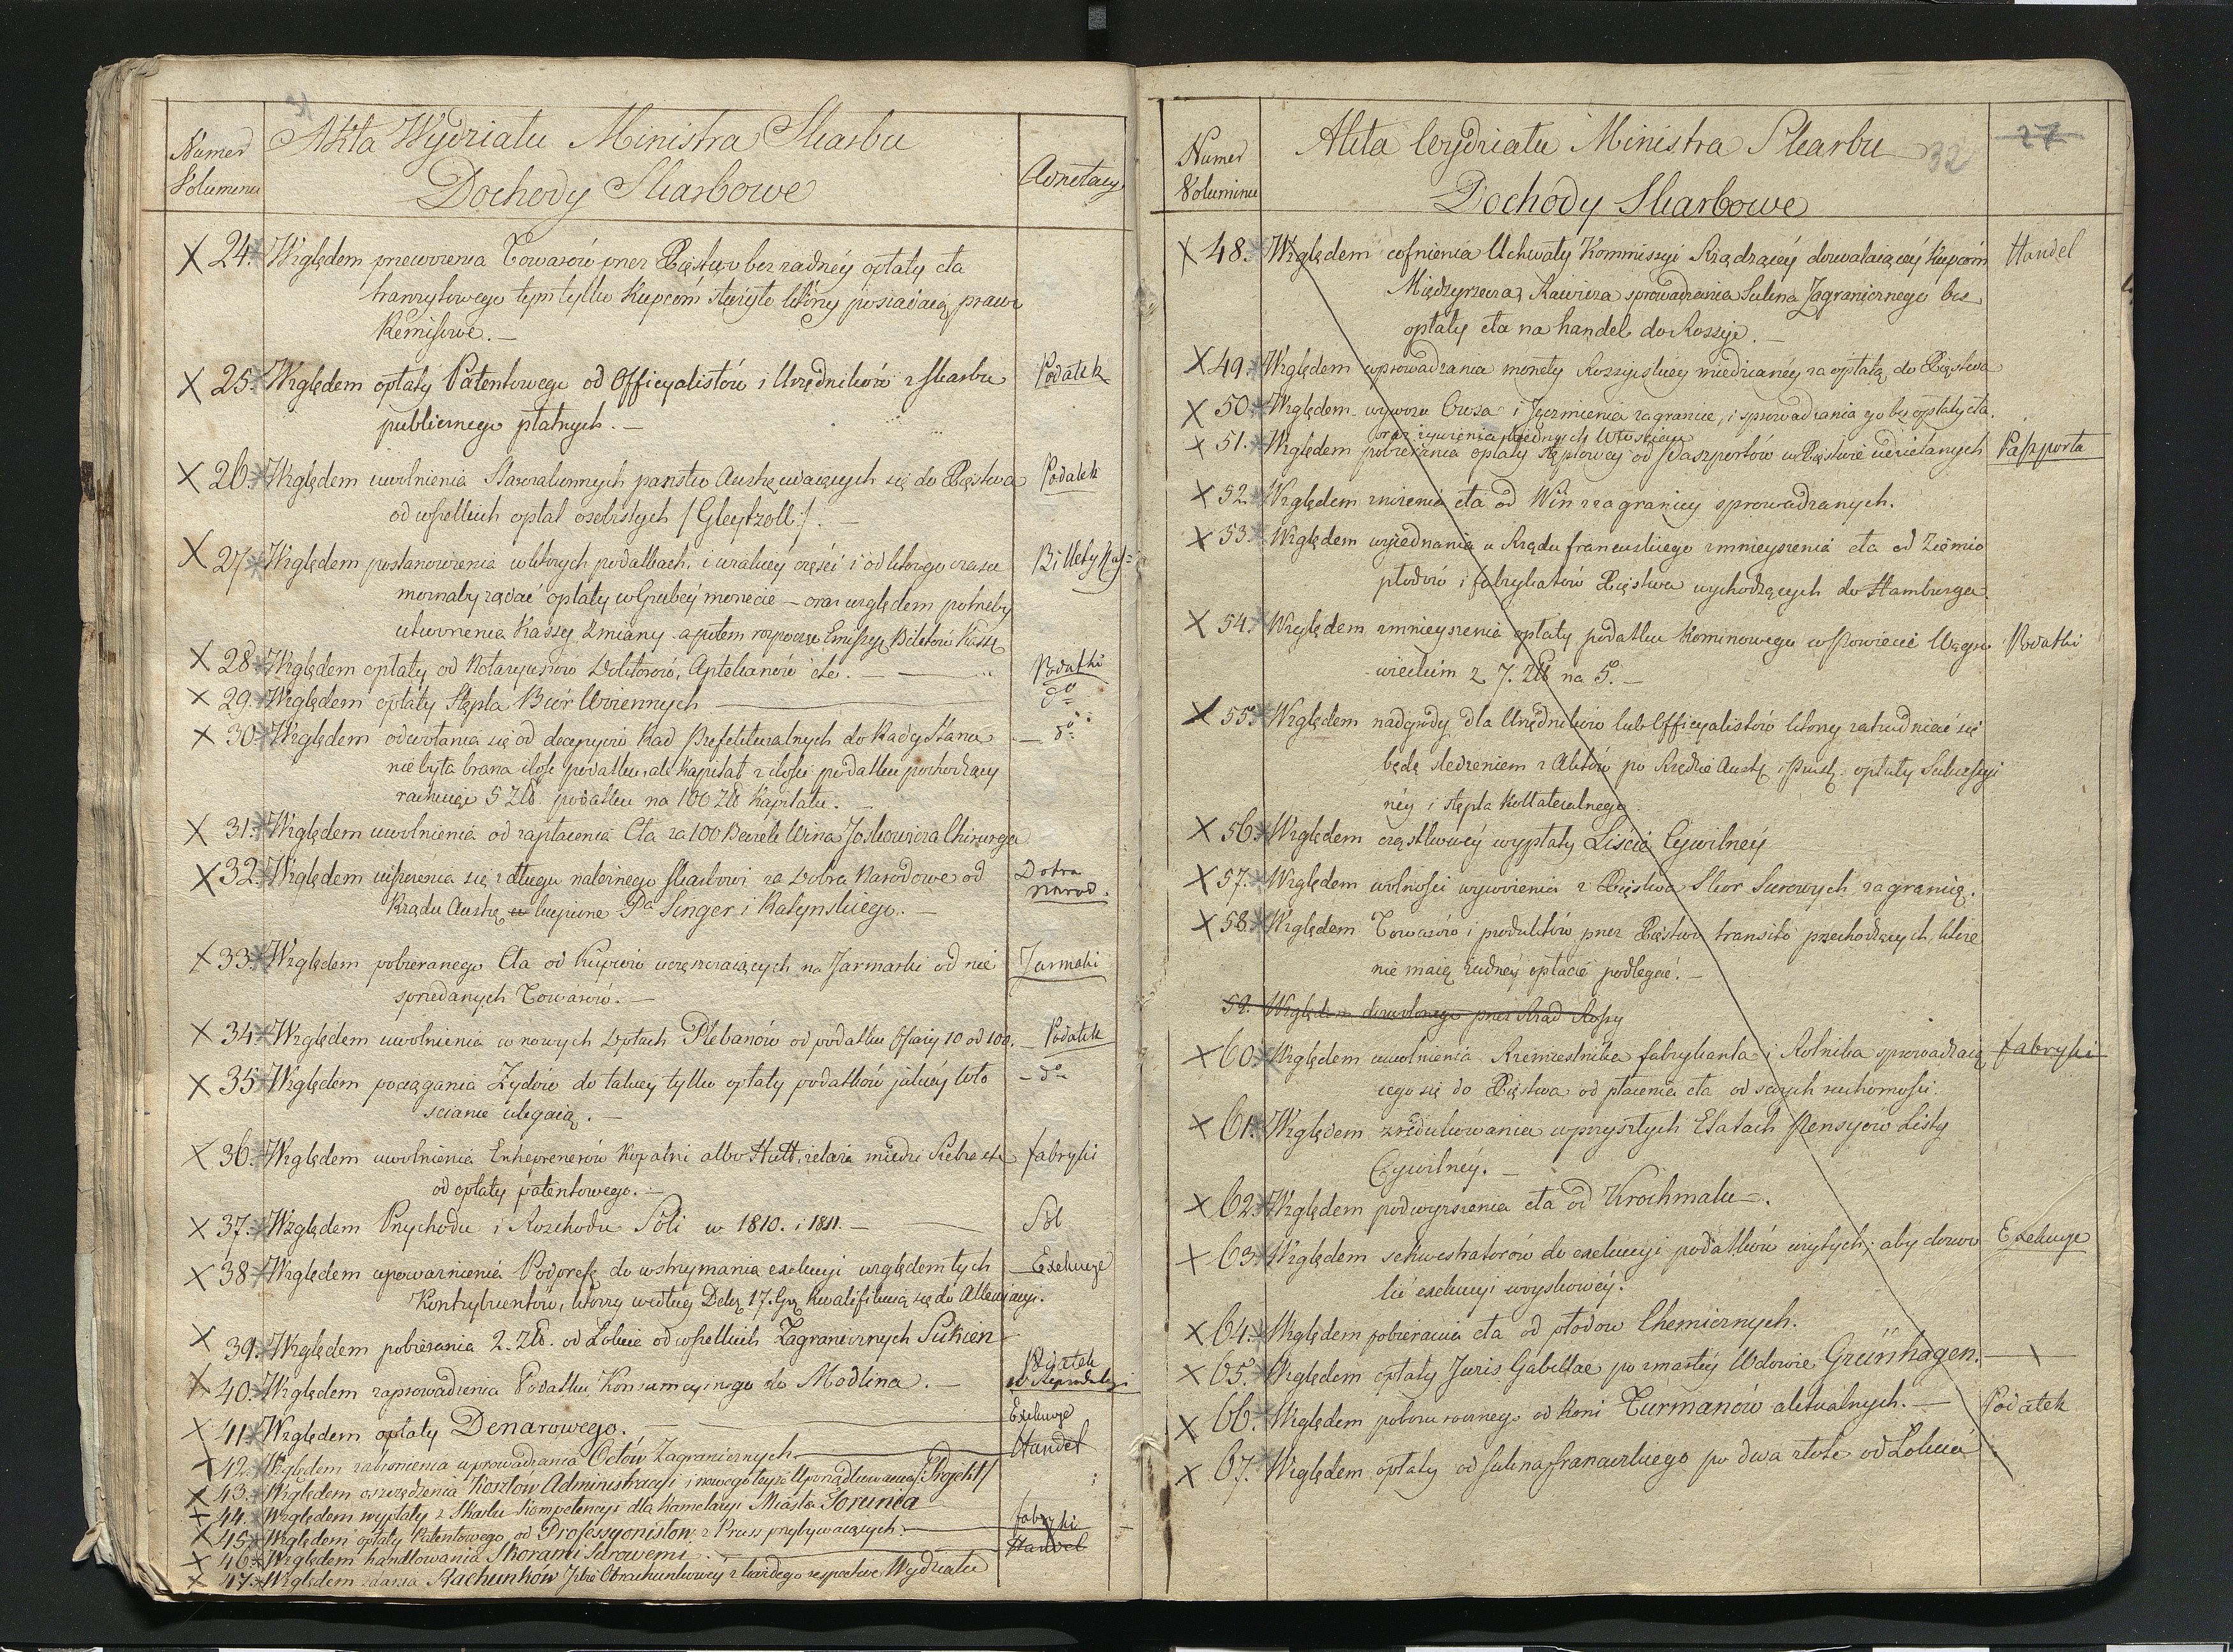 Numer
Voluminu
Akta Wydziału Ministra Skarbu
Dochody Skarbowe
Adnotacye
X 24. Względem przewozenia Towarów przez Xięstwo bez żadnéy opłaty cła
tranzytowego tym tylko Kupcóm służyło którzy posiadaią prawo
Remisowe. —
X 25. Względem opłaty Patentowego od Officyalistów i Urzędników z Skarbu
Podatek
publicznego płatnych. —
X 26. Względem uwolnienia Starozakonnych państw Austr: udaiących się do Xięstwa
Podatek
od wszelkich opłat osobistych /:Gleytzoll:/. —
X 27 Względem postanowienia w których podatkach, i w iakiey części i od którego czasu
Billety Kas:
moznaby ządać opłaty w Grubéy monecie — oraz względem potrzeby
utworzenia Kassy Zmiany a potem Emissyi Biletów Kass:
X 28. Względem opłaty od Notaryuszów Doktorów, Aptekarzów etc. —
Podatki
X 29. Względem opłaty Stępla Biór Woiennych
do
X 30. Względem odwołania się od decyzyów Rad Prefekturalnych do Rady Stanu
— do
nie była brana ilość podatku, ale Kapitał z ilości podatku pochodzący
rachuiąc 5 Zło. podatku na 100 Zło Kapitału. —
X 31. Względem uwolnienia od zapłacenia Cła za 100 Beczek Wina Joskowicza Chirurga
X 32. Względem uiszczenia się z długu należnego Skarbowi za Dobra Narodowe od
Dobra
Narod.
Rządu Austr: kupione Pa Singer i Ratynskiego. —
X 33. Względem pobieranego Cła od Kupców uczęszczaiących na Jarmarki od nie
Jarmarki
sprzedanych Towarów. —
X 34. Względem uwolnienia w nowych Dptach Plebanów od podatku Ofiary 10 od 100.
Podatek
X 35 Względem pociągania Żydów do takiey tylko opłaty podatków jakiéy Wło
— do
scianie ulegaią. —
X 36. Względem uwolnienia Entreprenerów Kopalni albo Hutt, zelaza miedzi Srebra etc
fabryki
od opłaty patentowego. —
X 37. Względem Przychodu i Rozchodu Soli w 1810. i 1811. —
Sol
X 38. Względem upoważnienia Podpref: do wstrzymania exekucyi względem tych
Exekucye
Kontrybuentów, którzy według Dekr: 17. Gr: kwalifikuią się do Allewiacyi.
X 39. Względem pobierania 2. Zło. od Łokcia od wszelkich Zagranicznych Sukien
X 40. Względem zaprowadzenia Podatku Konsumcyinego do Modlina. —
X 41. Względem opłaty Denarowego. —
Exekucye
X 42. Względem zabronienia wprowadzania Octów Zagranicznych
Handel
X 43. Względem oszczędzenia Kosztów Administracyi i nowego teyże Uporządkowania /:Projekt:/
X 44. Względem wypłaty z Skarbu Kompetencyi dla Kamelaryi Miasta Torunia
X 45. Względem opłaty Patentowego od Professyonistów z Pruss przybywaiących.
fabryki
X 46. Względem handlowania Skorami Surowemi.
Handel
X 47. Względem zdania Rachunków Izbie Obrachunkowey z każdego respective Wydziału
Numer
Voluminu
Akta Wydziału Ministra Skarbu
32
27
Dochody Skarbowe
X 48. Względem cofnienia Uchwały Kommissyi Rządzącéy dozwalaiącey Kupcóm
Handel
Międzyrzecza, Rawicza sprowadzania Sukna Zagranicznego bez
opłaty cła na handel do Rossyi. —
X 49. Względem wprowadzania monety Rossyiskiey miedzianéy za opłatą do Xięstwa
X 50. Względem wywozu Owsa i Jęczmienia zagranice, i sprowadzania go bez opłaty cła.
oraz żywienia biednych Włościan
X 51. Względem pobierania opłaty stęplowey od Paszportów w Xięstwie udzielanych
Paszporta
X 52. Względem zniżenia cła od Win z zagranicy sprowadzanych.
X 53. Względem wyiednania u Rządu francuskiego zmnieyszenia cła od Ziemio
płodów i fabrykatów Xięstwa wychodzących do Hamburga.
X 54. Względem zmnieyszenia opłaty podatku Kominowego w Powiecie Wągro
Podatki
wieckim z 7. Zło na 5. —
X 55. Względem nadgrody dla Urzędników lub Officyalistów którzy zatrudniać się
będą sledzeniem z Aktów po Rządzie Austr: i Prusk: opłaty Sukcessyi
néy i stępla Kollateralnego
X 56. Względem cząstkowéy wypłaty Liście Cywilnéy
X 57. Względem wolności wywożenia z Xięstwa Skor Surowych zagranicę.
X 58. Względem Towarów i produktów przez Xięstwo transito przechodzących, które
nie maią żadnéy opłacie podlegać. —
59. Względem dozwolonego przez Rząd Rossy
X 60. Względem uwolnienia Rzemieslnika fabrykanta i Rolnika sprowadzaią
fabryki
cego się do Xięstwa od płacenia cła od swych ruchomości.
X 61. Względem zredukowania w przyszłych Etatach Pensyów Listy
Cywilnéy. —
X 62. Względem podwyższenia cła od Krochmalu —.
X 63. Względem sekwestratorów do exekucyi podatków użytych; aby dozwo
Exekucye
lić exekucyi woyskowéy.
X 64. Względem pobierania cła od płodów Chemicznych.
X 65. Względem opłaty Juris Gabellae po zmarłéy Wdowie Grünhagen.
X 66. Względem poboru rocznego od Koni Furmanów aktualnych. —
Podatek
X 67. Względem opłaty od sukna francuzkiego po dwa złote od Łokcia